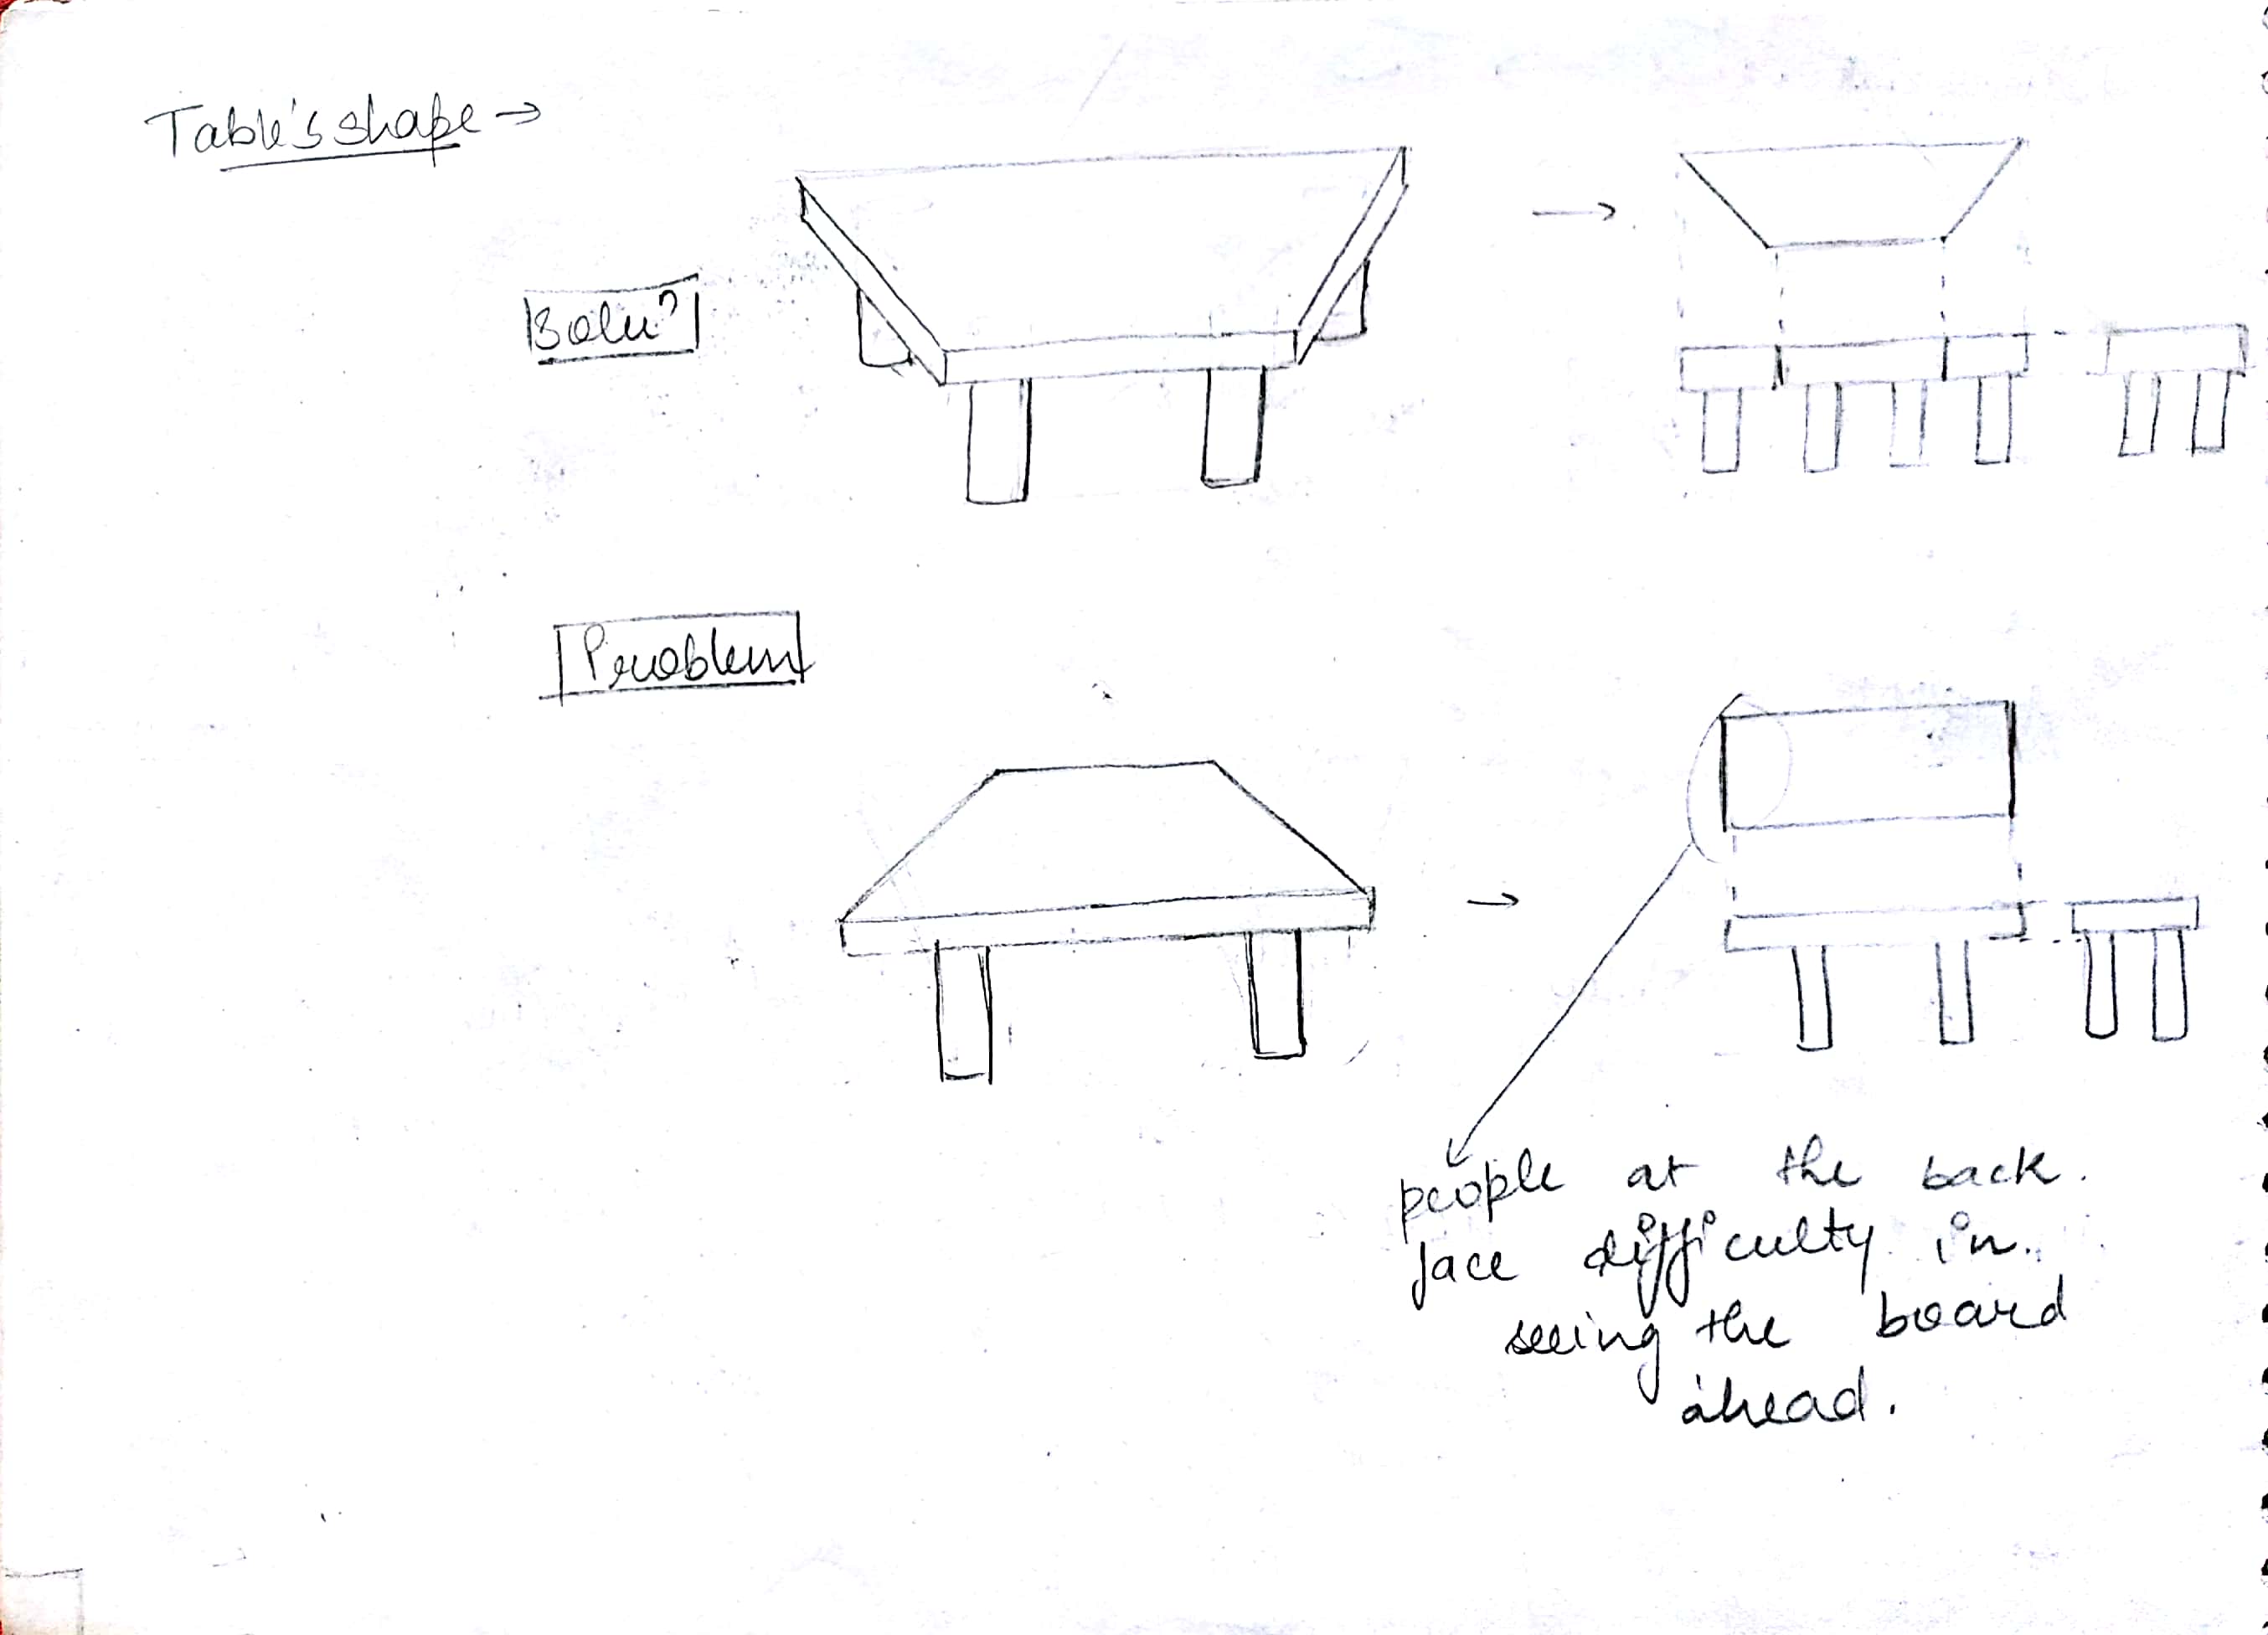 Table's shape →
Soluⁿ
Problem
people at the back.
face difficulty in.
seeing the board
ahead.